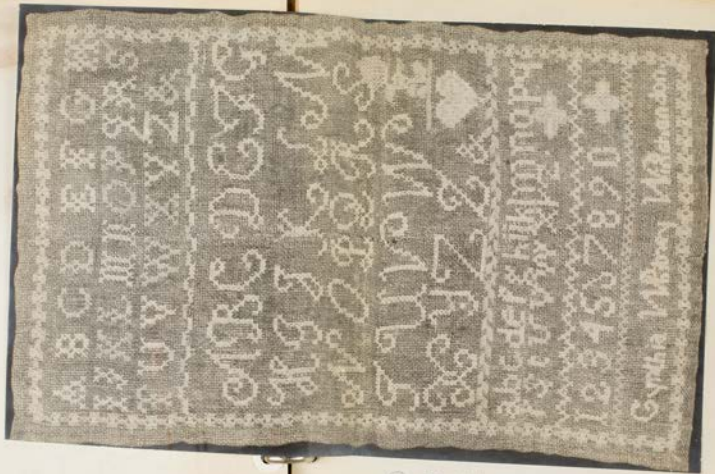 A B C D E F G H
I J K L M N O P Q R S
T U V W X Y Z &
A B C D E F G
H I J K L M
N O P Q R S
T U V W
X Y Z &
a b c d e f g h i j k l m n o p q r
s t u v w x y z
1 2 3 4 5 6 7 8 9 0
Cyntha